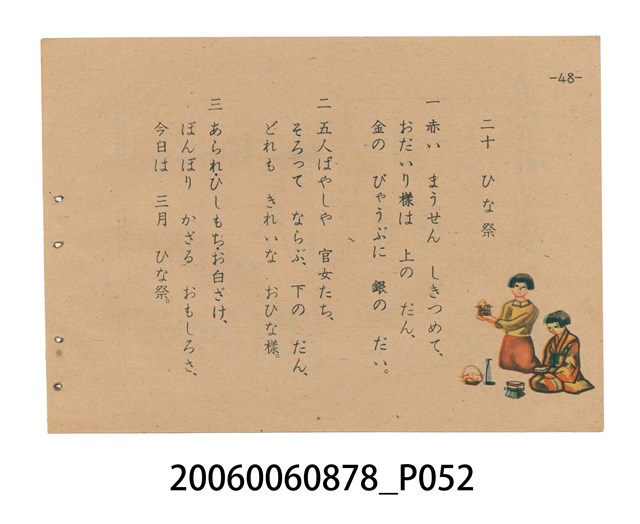 -48-
二十 ひな祭
一 赤い まうせん しきつめて、
おだいり様は 上の だん、
金の びゃうぶに 銀の だい。
二 五人ばやしや 官女たち、
そろって ならぶ、下の だん、
どれも きれいな おひな様。
三 あられ・ひしもち・お白ざけ、
ぼんぼり かざる おもしろさ、
今日は 三月 ひな祭。
20060060878_P052